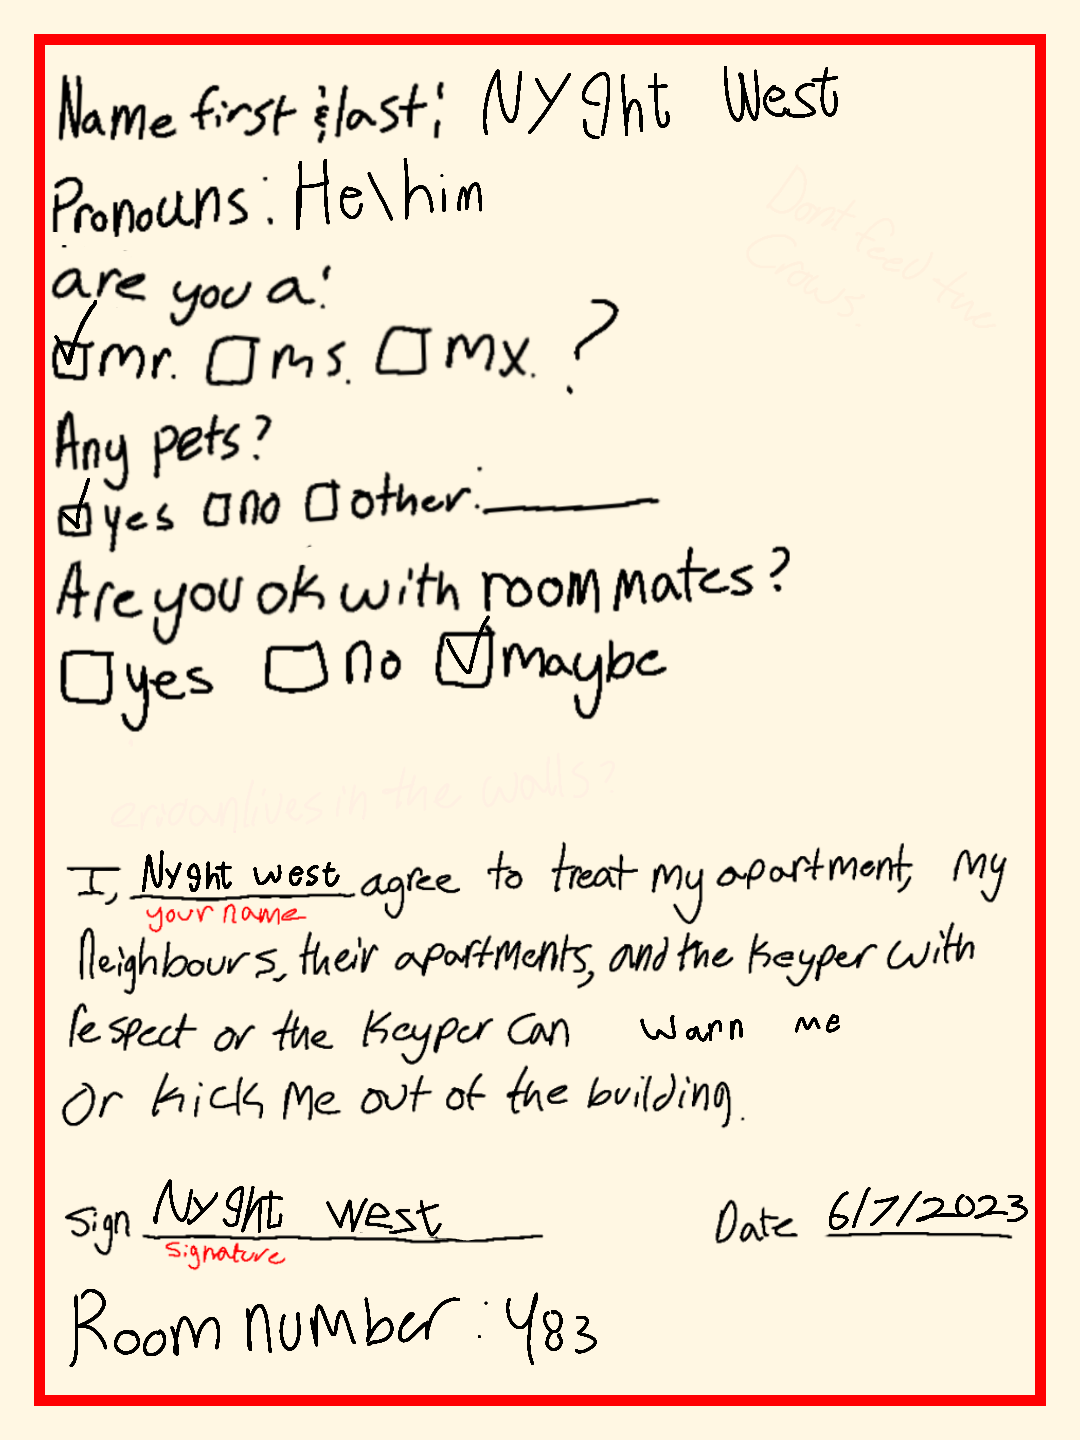 Name first & last: Nyght West
Pronouns: He\him
Dont feed the
Crows.
are you a:
mr. ms. mx. ?
Any pets?
yes no other:
Are you ok with roommates?
yes no maybe
lives in the walls?
I, Nyght west agree to treat my apartment, my
your name
Neighbours, their apartments, and the Keyper with
respect or the Keyper can warn me
Or kick me out of the building.
Sign Nyght west Date 6/7/2023
signature
Room number: 483